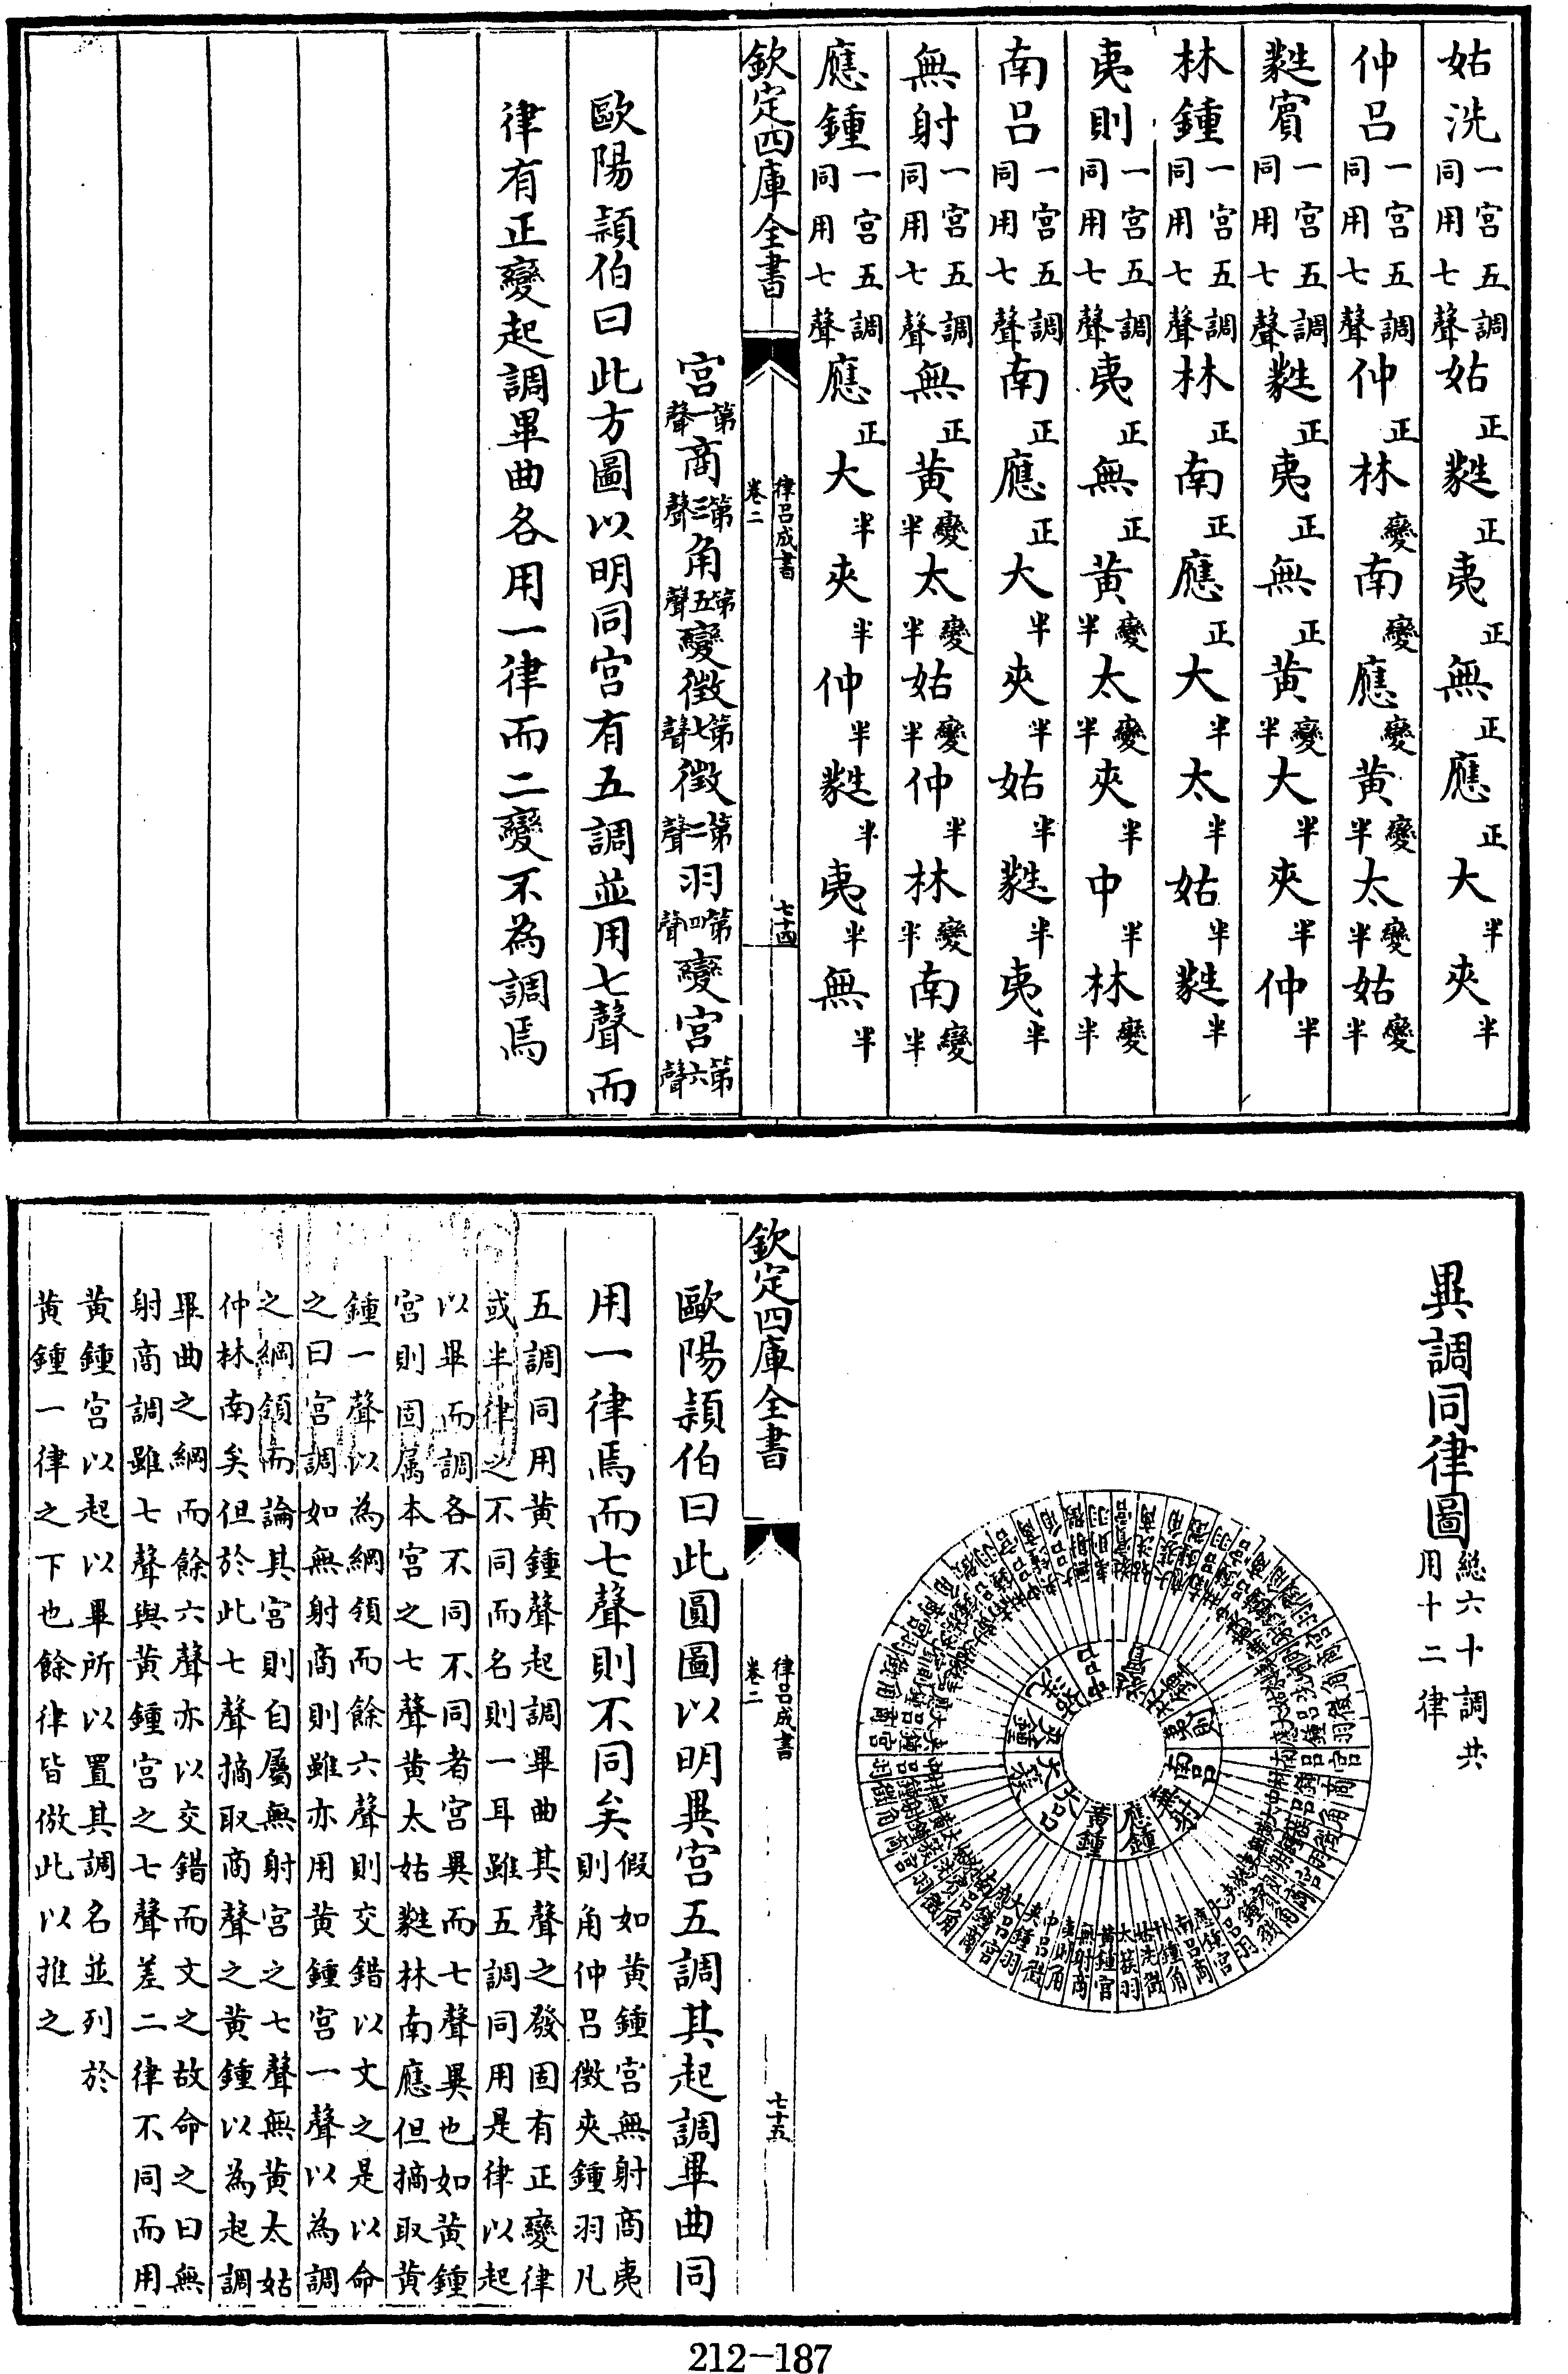 姑洗一宫五調同用七聲姑正蕤正夷正無正應正大半夾半
仲吕一宫五調同用七聲仲正林變南變應變黄變半太變半姑變半
蕤賓一宫五調同用七聲蕤正夷正無正黄變半大半夾半仲半
林鍾一宫五調同用七聲林正南正應正大半太半姑半蕤半
夷則一宫五調同用七聲夷正無正黄變半太變半夾半中半林變半
南吕一宫五調同用七聲南正應正大半夾半姑半蕤半夷半
無射一宫五調同用七聲無正黄變半太變半姑變半仲半林變半南變半
應鍾一宫五調同用七聲應正大半夾半仲半蕤半夷半無半
欽定四庫全書
律吕成書
卷二
七十四
宫第一聲商第三聲角第五聲變徴第七聲徴第二聲羽第四聲變宫第六聲
歐陽潁伯曰此方圖以明同宫有五調並用七聲而
律有正變起調畢曲各用一律而二變不為調焉
異調同律圖總六十調共用十二律
黄鍾
大吕
太簇
夾鍾
姑洗
中吕
蕤賓
林鍾
夷則
南吕
無射
應鍾
黄鍾宫
無射商
夷則角
中吕徴
夾鍾羽
大吕宫
應鍾商
太簇羽
姑洗徴
林鍾角
南吕商
應鍾宫
欽定四庫全書
律吕成書
卷二
七十五
歐陽潁伯曰此圓圖以明異宫五調其起調畢曲同
用一律焉而七聲則不同矣假如黄鍾宫無射商夷
則角仲吕徴夾鍾羽凡
五調同用黄鍾聲起調畢曲其聲之發固有正變律
或半律之不同而名則一耳雖五調同用是律以起
以畢而調各不同不同者宫異而七聲異也如黄鍾
宫則固属本宫之七聲黄太姑蕤林南應但摘取黄
鍾一聲以為綱領而餘六聲則交錯以文之是以命
之曰宫調如無射商則雖亦用黄鍾宫一聲以為調
之綱領而論其宫則自屬無射宫之七聲無黄太姑
仲林南矣但於此七聲摘取商聲之黄鍾以為起調
畢曲之綱而餘六聲亦以交錯而文之故命之曰無
射商調雖七聲與黄鍾宫之七聲差二律不同而用
黄鍾宫以起以畢所以置其調名並列於
黄鍾一律之下也餘律皆倣此以推之
212-187